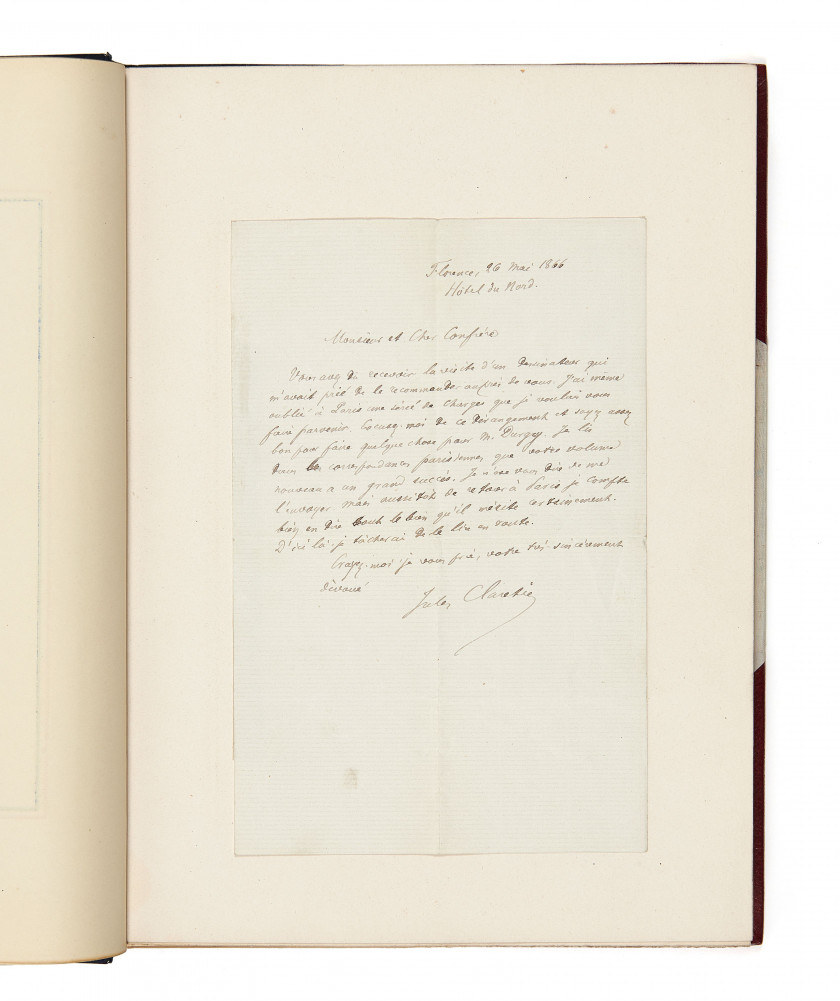 Florence, 26 mai 1866
Hôtel du Nord.
Monsieur et Cher Confrère
Vous avez dû recevoir la visite d'un dessinateur qui
m'avait prié de le recommander auprès de vous. J'ai même
oublié à Paris une série de charges que je voulais vous
faire parvenir. Excusez-moi de ce dérangement et soyez assez
bon pour faire quelque chose pour M. Je lis
dans les correspondances parisiennes que votre volume
nouveau a un grand succès. Je n'ose vous dire de me
l'envoyer mais aussitôt de retour à Paris je compte
bien en dire tout le bien qu'il mérite certainement.
D'ici là je tâcherai de le lire en route.
Croyez-moi je vous prie, votre très sincèrement
dévoué
Jules Claretie